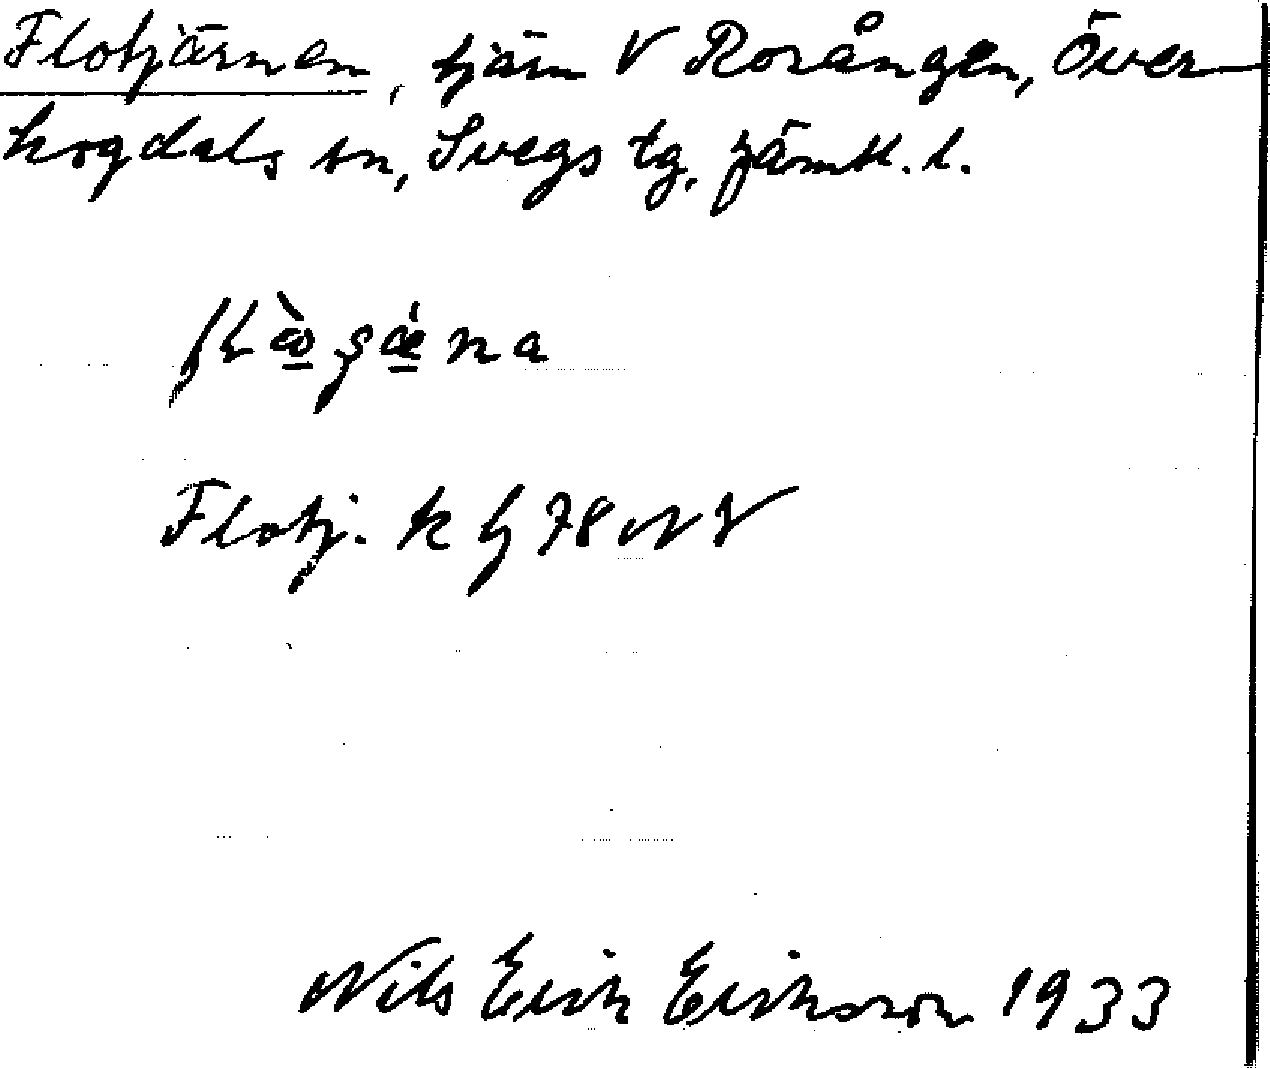 Flotjärnen, tjärn V Rosången, Över-
hogdals sn, Svegs tg, Jämtl. l.
Flotj. k bj 78 NV
Nils Erik Eriksson 1933